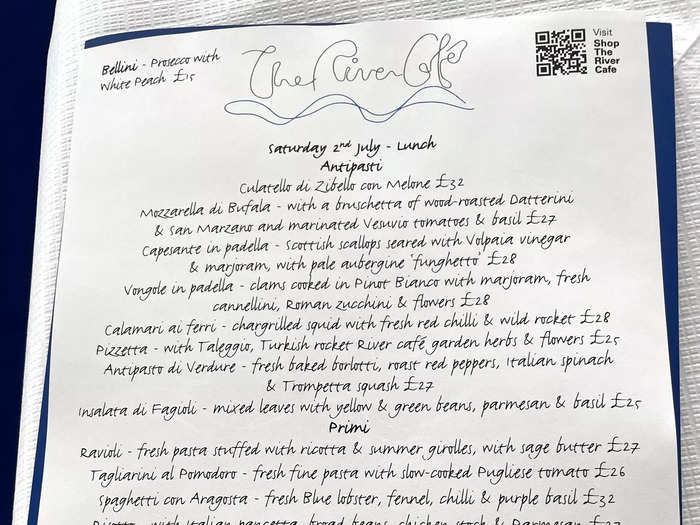 Bellini - Prosecco with
White Peach £15
The River Café
Visit
Shop
The
River
Cafe
Saturday 2nd July - Lunch
Antipasti
Culatello di Zibello con Melone £32
Mozzarella di Bufala - with a bruschetta of wood-roasted Datterini
& San Marzano and marinated Vesuvio tomatoes & basil £27
Capesante in padella - Scottish scallops seared with Volpaia vinegar
& marjoram, with pale aubergine 'funghetto' £28
Vongole in padella - clams cooked in Pinot Bianco with marjoram, fresh
cannellini, Roman zucchini & flowers £28
Calamari ai ferri - chargrilled squid with fresh red chilli & wild rocket £28
Pizzetta - with Taleggio, Turkish rocket River café garden herbs & flowers £25
Antipasto di Verdure - fresh baked borlotti, roast red peppers, Italian spinach
& Trompetta squash £27
Insalata di Fagioli - mixed leaves with yellow & green beans, parmesan & basil £25
Primi
Ravioli - fresh pasta stuffed with ricotta & summer girolles, with sage butter £27
Tagliarini al Pomodoro - fresh fine pasta with slow-cooked Pugliese tomato £26
Spaghetti con Aragosta - fresh Blue lobster, fennel, chilli & purple basil £32
Risotto - with Italian pancetta, broad beans, chicken stock & Parmesan